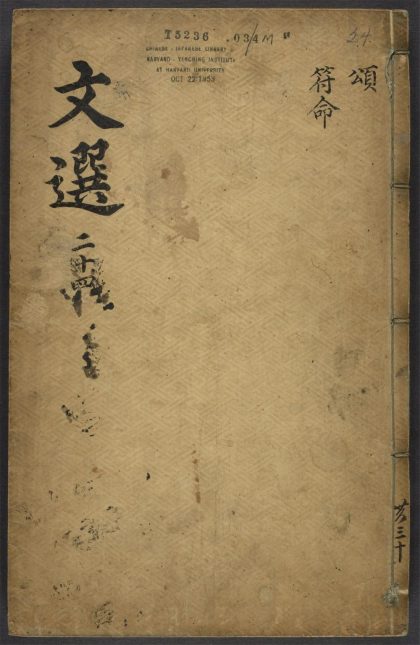 T5236 .03/4M
CHINESE - JAPANESE LIBRARY
HARVARD - YENCHING INSTITUTE
AT HARVARD UNIVERSITY
OCT 22 1953
24
頌
符命
文選
二十四
共三十